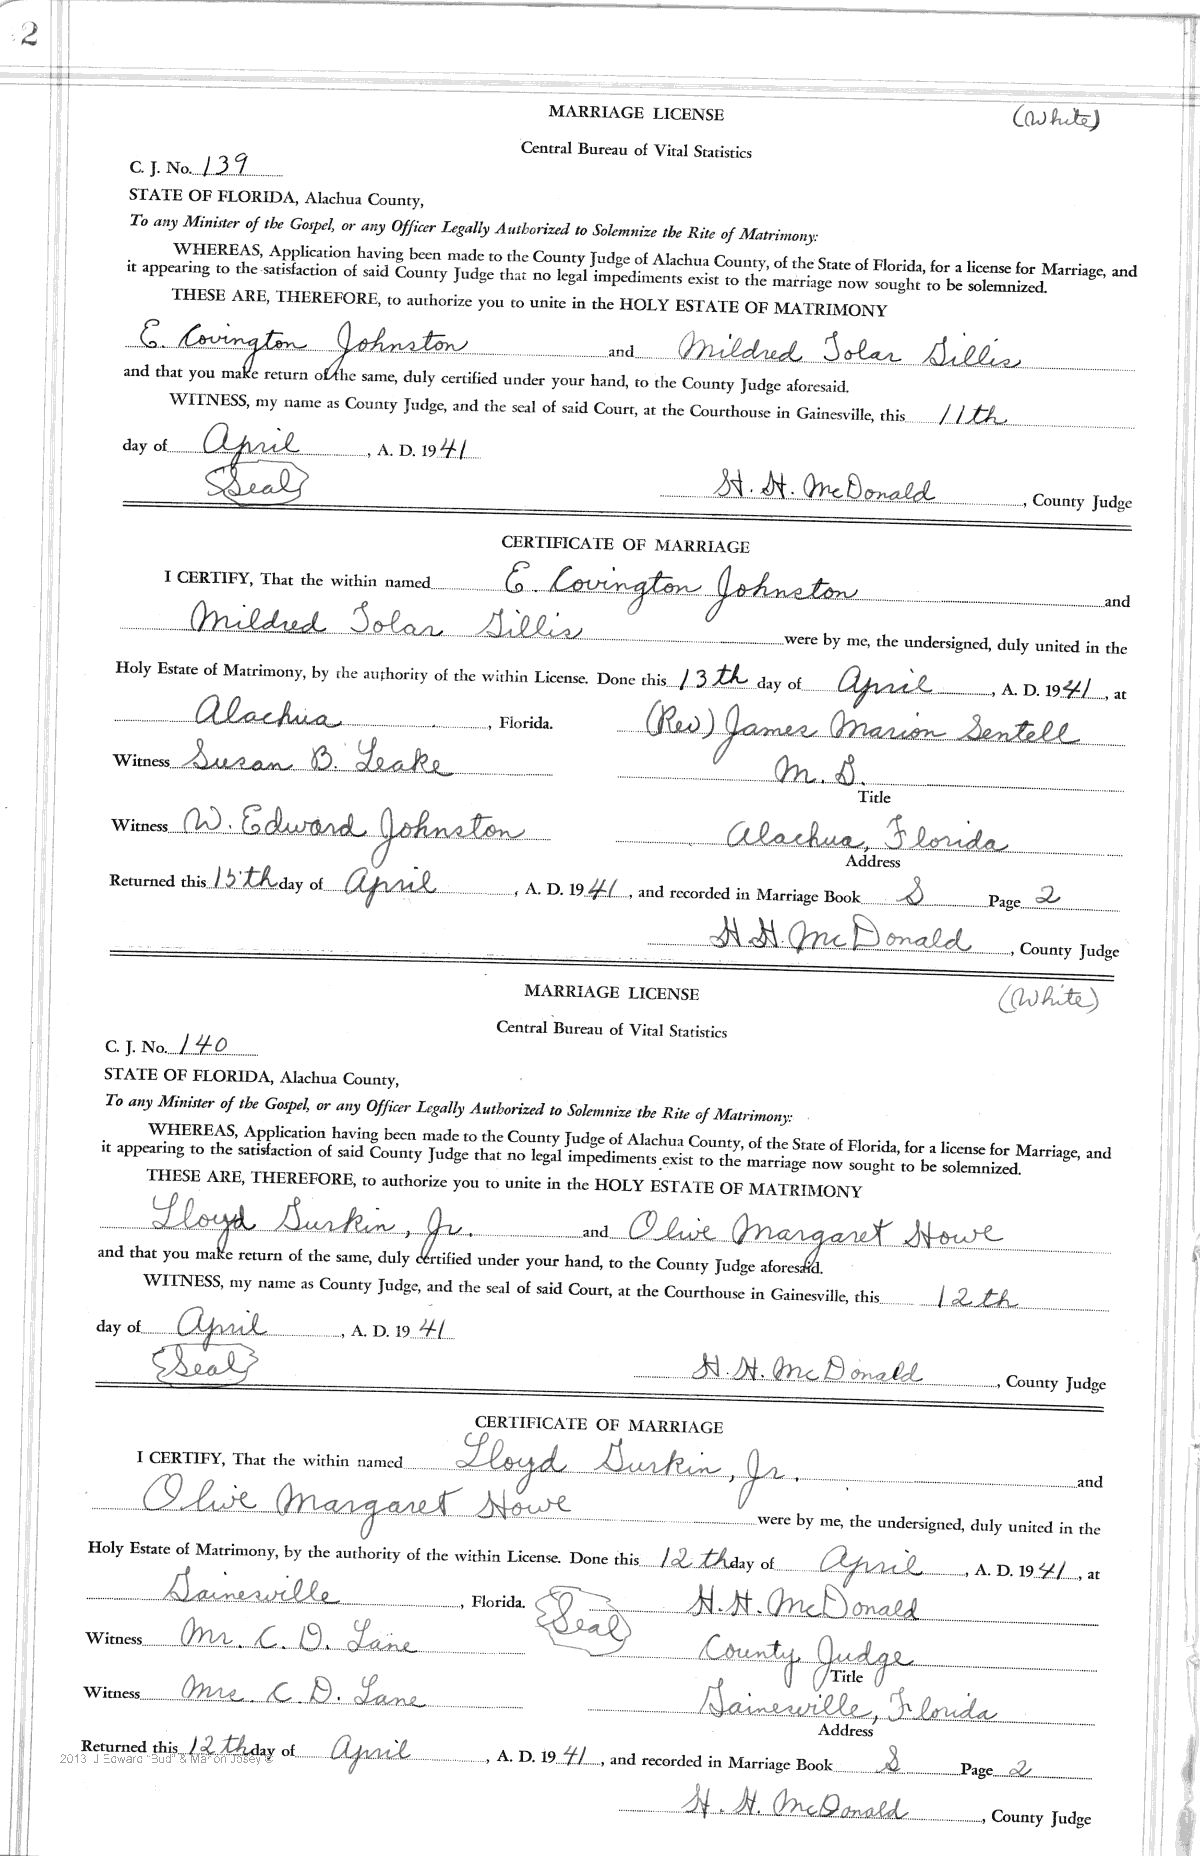 2
MARRIAGE LICENSE
(White)
Central Bureau of Vital Statistics
C. J. No. 139
STATE OF FLORIDA, Alachua County,
To any Minister of the Gospel, or any Officer Legally Authorized to Solemnize the Rite of Matrimony:
WHEREAS, Application having been made to the County Judge of Alachua County, of the State of Florida, for a license for Marriage, and
it appearing to the satisfaction of said County Judge that no legal impediments exist to the marriage now sought to be solemnized.
THESE ARE, THEREFORE, to authorize you to unite in the HOLY ESTATE OF MATRIMONY
E. Covington Johnston and Mildred Tolar Gillis
and that you make return of the same, duly certified under your hand, to the County Judge aforesaid.
WITNESS, my name as County Judge, and the seal of said Court, at the Courthouse in Gainesville, this 11th
day of April, A. D. 1941
(Seal)
H. H. McDonald, County Judge
CERTIFICATE OF MARRIAGE
I CERTIFY, That the within named E. Covington Johnston and
Mildred Tolar Gillis were by me, the undersigned, duly united in the
Holy Estate of Matrimony, by the authority of the within License. Done this 13th day of April, A. D. 1941, at
Alachua, Florida. (Rev) James Marion Sentell
Witness Susan B. Leake M. G.
Title
Witness W. Edward Johnston Alachua, Florida
Address
Returned this 15th day of April, A. D. 1941, and recorded in Marriage Book S Page 2
H. H. McDonald, County Judge
MARRIAGE LICENSE
(White)
Central Bureau of Vital Statistics
C. J. No. 140
STATE OF FLORIDA, Alachua County,
To any Minister of the Gospel, or any Officer Legally Authorized to Solemnize the Rite of Matrimony:
WHEREAS, Application having been made to the County Judge of Alachua County, of the State of Florida, for a license for Marriage, and
it appearing to the satisfaction of said County Judge that no legal impediments exist to the marriage now sought to be solemnized.
THESE ARE, THEREFORE, to authorize you to unite in the HOLY ESTATE OF MATRIMONY
Lloyd Gurkin, Jr. and Olive Margaret Howe
and that you make return of the same, duly certified under your hand, to the County Judge aforesaid.
WITNESS, my name as County Judge, and the seal of said Court, at the Courthouse in Gainesville, this 12th
day of April, A. D. 1941
(Seal)
H. H. McDonald, County Judge
CERTIFICATE OF MARRIAGE
I CERTIFY, That the within named Lloyd Gurkin, Jr. and
Olive Margaret Howe were by me, the undersigned, duly united in the
Holy Estate of Matrimony, by the authority of the within License. Done this 12th day of April, A. D. 1941, at
Gainesville, Florida. (Seal) H. H. McDonald
Witness Mr. C. D. Lane County Judge
Title
Witness Mrs. C. D. Lane Gainesville, Florida
Address
Returned this 12th day of April, A. D. 1941, and recorded in Marriage Book S Page 2
2013 J Edward "Bud" & Marion Josey ©
H. H. McDonald, County Judge